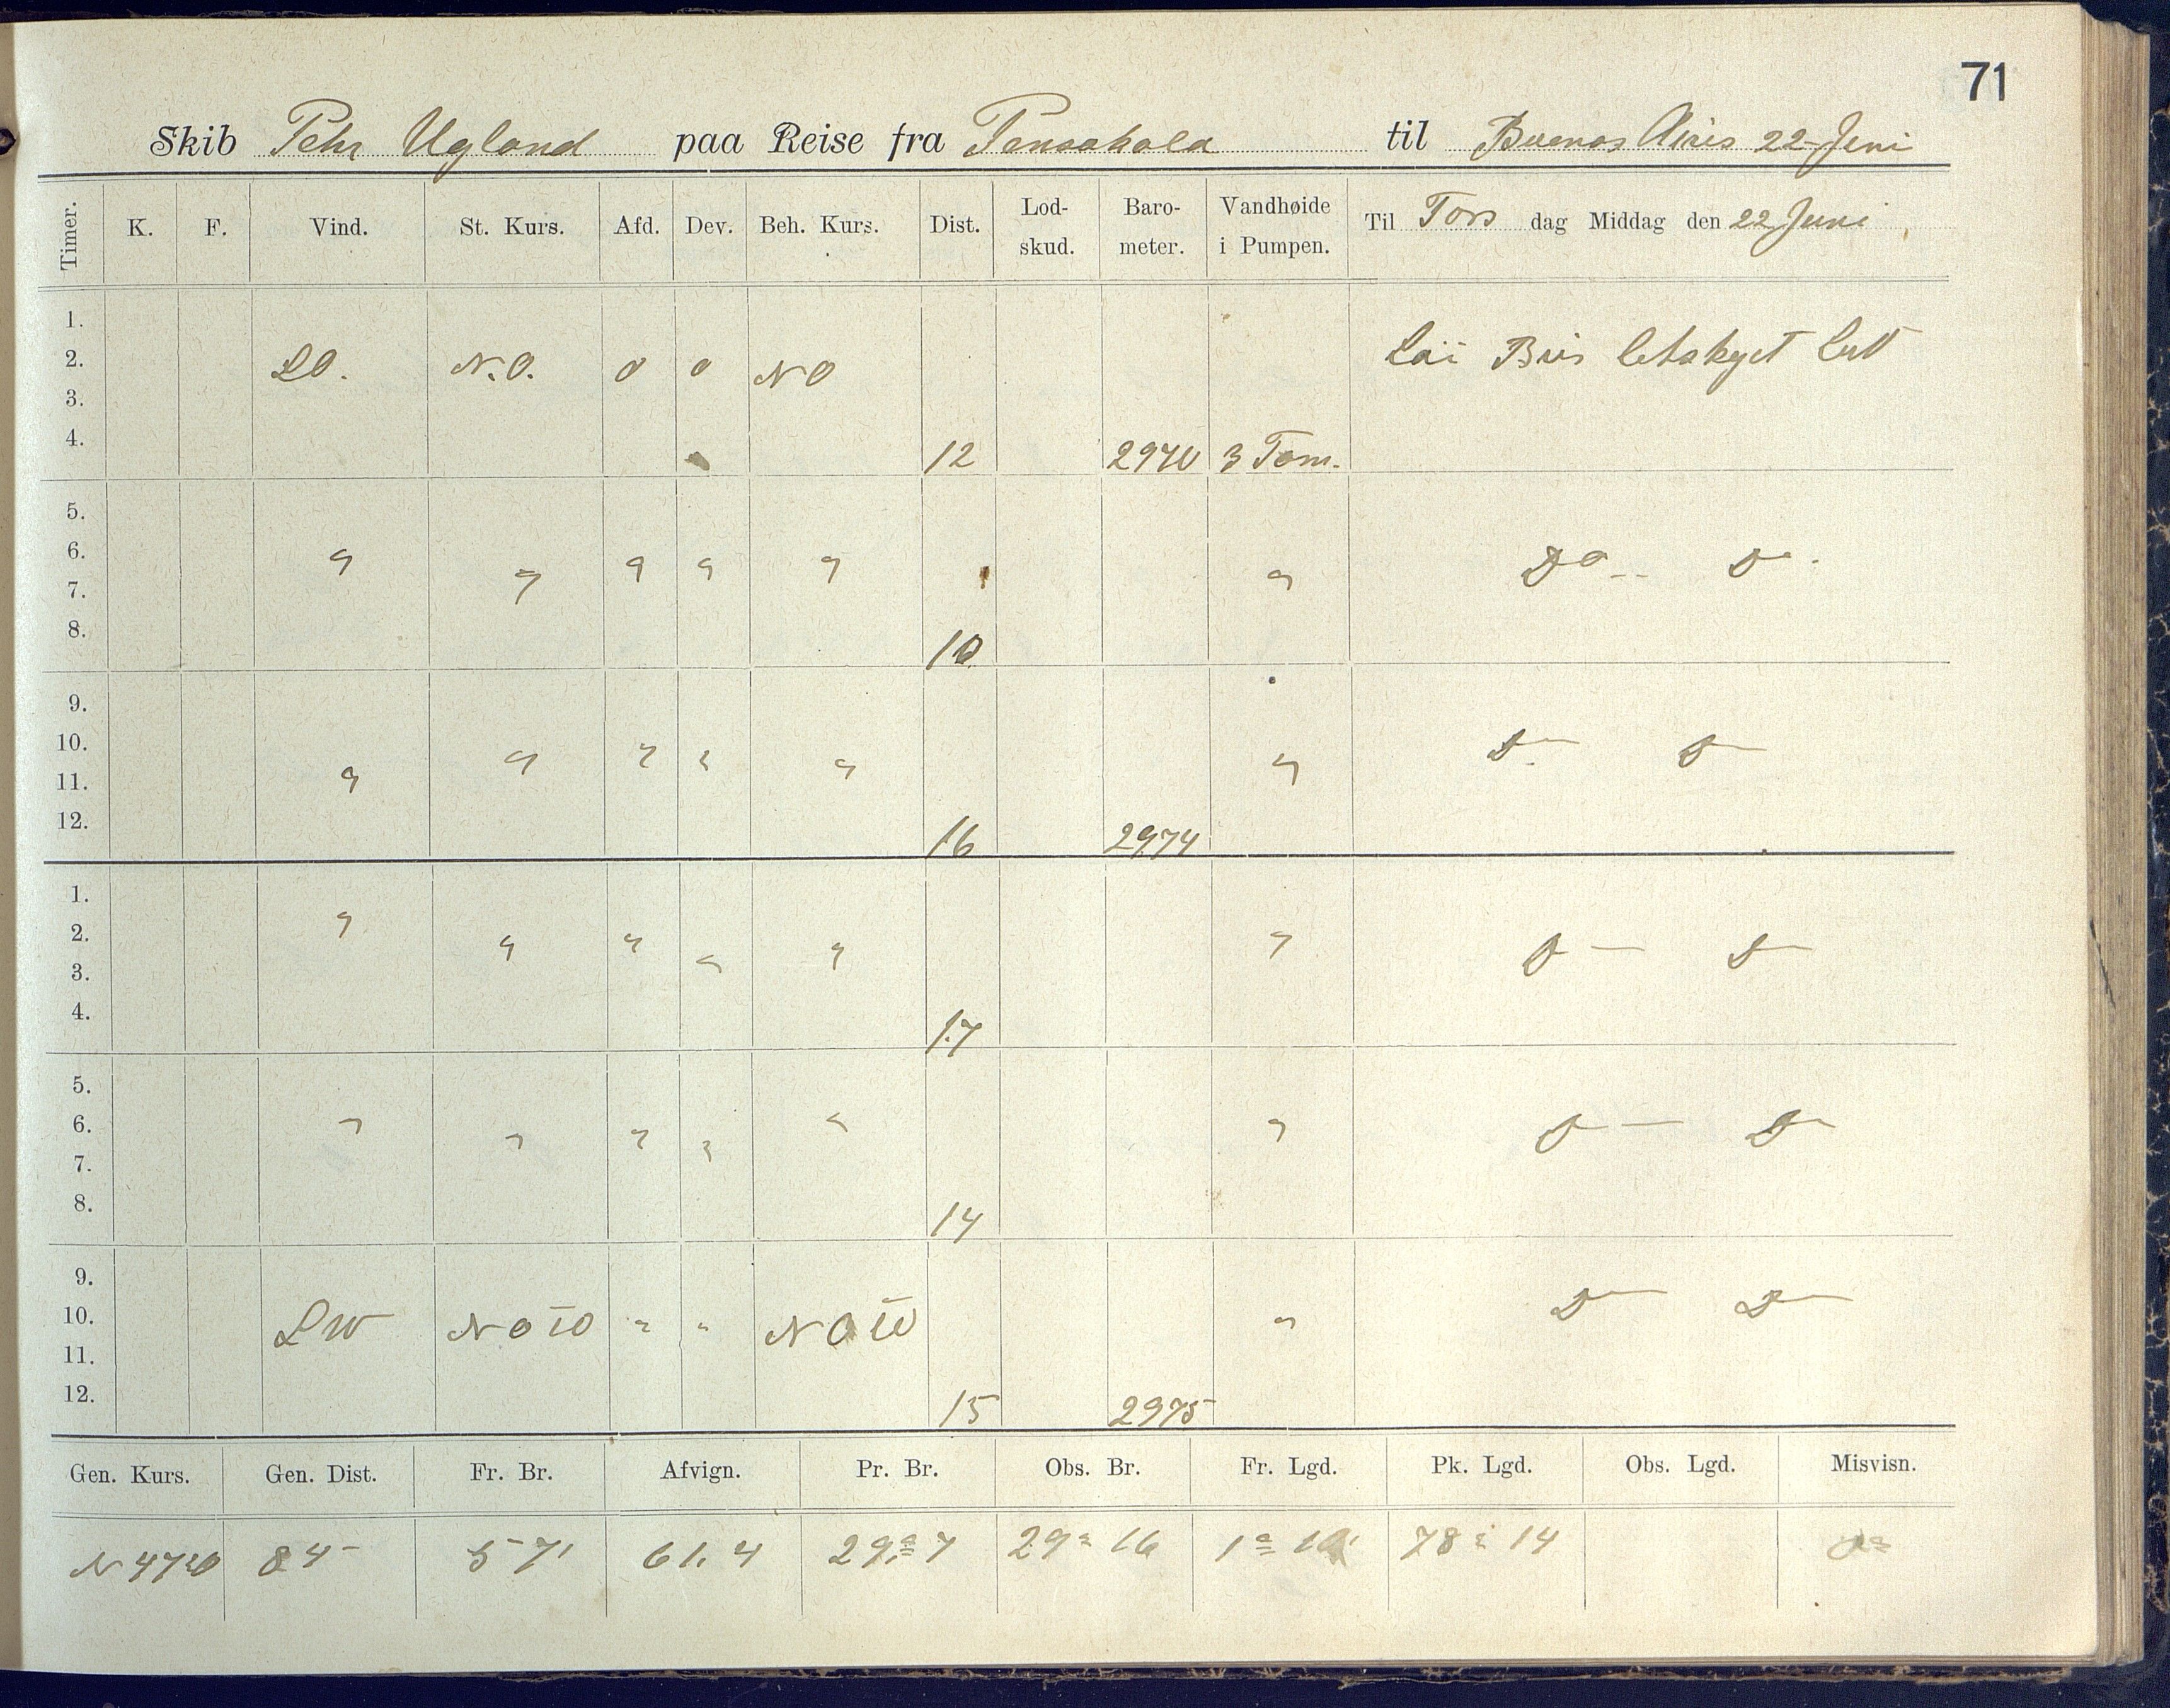 71
Skib Pehr Ugland paa Reise fra Pensakola til Buenos Aires 22 Juni
Timer. K. F. Vind. St. Kurs. Afd. Dev. Beh. Kurs. Dist. Lod-skud. Baro-meter. Vandhøide i Pumpen. Til Tors dag Middag den 22 Juni
1.
2. SO. N.O. 0 0 NO Bris letskyet
3.
4. 12 2970 3 Tom.
5.
6. " " " " " " Do -- D -
7.
8. 10
9.
10. " " " " " " D - D -
11.
12. 16 2974
1.
2. " " " " " " D - D -
3.
4. 17
5.
6. " " " " " " D - D -
7.
8. 14
9.
10. SW NOtO " " NOtO " D - D -
11.
12. 15 2975
Gen. Kurs. Gen. Dist. Fr. Br. Afvign. Pr. Br. Obs. Br. Fr. Lgd. Pk. Lgd. Obs. Lgd. Misvisn.
N 47 O 84 57' 61.4 29° 7 29° 16 1° 78° 14